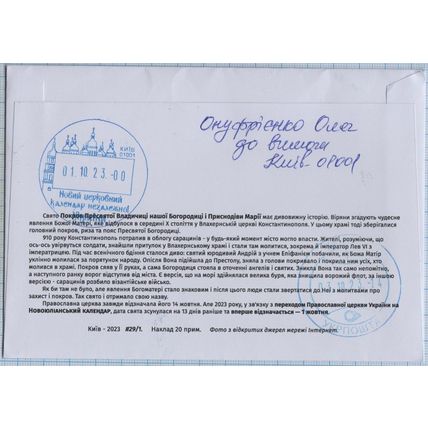 Онуфрієнко Олег
до вимоги
Київ-01001
КИЇВ
01001
01.10.23.-00
Новий церковний
календар незалежної
Свято Покров Пресвятої Владичиці нашої Богородиці і Приснодіви Марії має дивовижну історію. Віряни згадують чудесне
явлення Божої Матері, яке відбулося в середині X століття у Влахернській церкві Константинополя. У цьому храмі тоді зберігалися
головний покров, риза та пояс Пресвятої Богородиці.
910 року Константинополь потрапив в облогу сарацинів - у будь-який момент місто могло впасти. Жителі, розуміючи, що
ось-ось увірвуться солдати, знайшли притулок у Влахернському храмі і стали там молитися, зокрема й імператор Лев VI з
імператрицею. Під час всенічного бдіння сталося диво: святий юродивий Андрій з учнем Епіфанієм побачили, як Божа Матір
уклінно молилася за порятунок народу. Опісля Вона підійшла до Престолу, зняла з голови покривало і покрила ним усіх, хто
молився в храмі. Покров сяяв у Її руках, а сама Богородиця стояла в оточенні ангелів і святих. Зникла Вона так само непомітно,
а наступного ранку ворог відступив від міста. Є версія, що на морі здійнялася велика буря, яка знищила ворожий флот, за іншою
версією - сарацинів розбило візантійське військо.
Як би там не було, але явлення Богоматері стало знаковим і після цього люди стали звертатися до Неї з молитвами про
захист і покров. Так свято і отримало свою назву.
Православна церква завжди відзначала його 14 жовтня. Але 2023 року, у зв'язку з переходом Православної церкви України на
НОВОЮЛІАНСЬКИЙ КАЛЕНДАР, дата свята зсунулася на 13 днів раніше та вперше відзначається — 1 жовтня.
Київ - 2023 #29/1. Наклад 20 прим. Фото з відкритих джерел мережі Інтернет.
УКРПОШТА